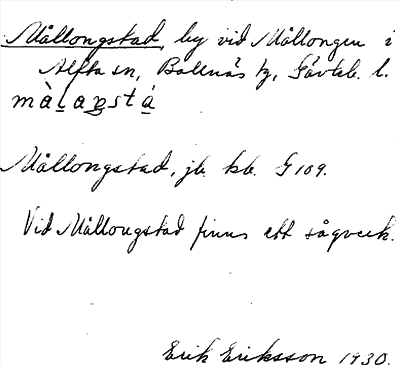 Mållongstad, by vid Mållongen i
Alfta sn, Bollnäs tg, Gävleb. l.
màḷaṉstá̠
Mållongstad, jb. kb. G 109.
Vid Mållongstad finns ett sågverk.
Erik Eriksson 1930.